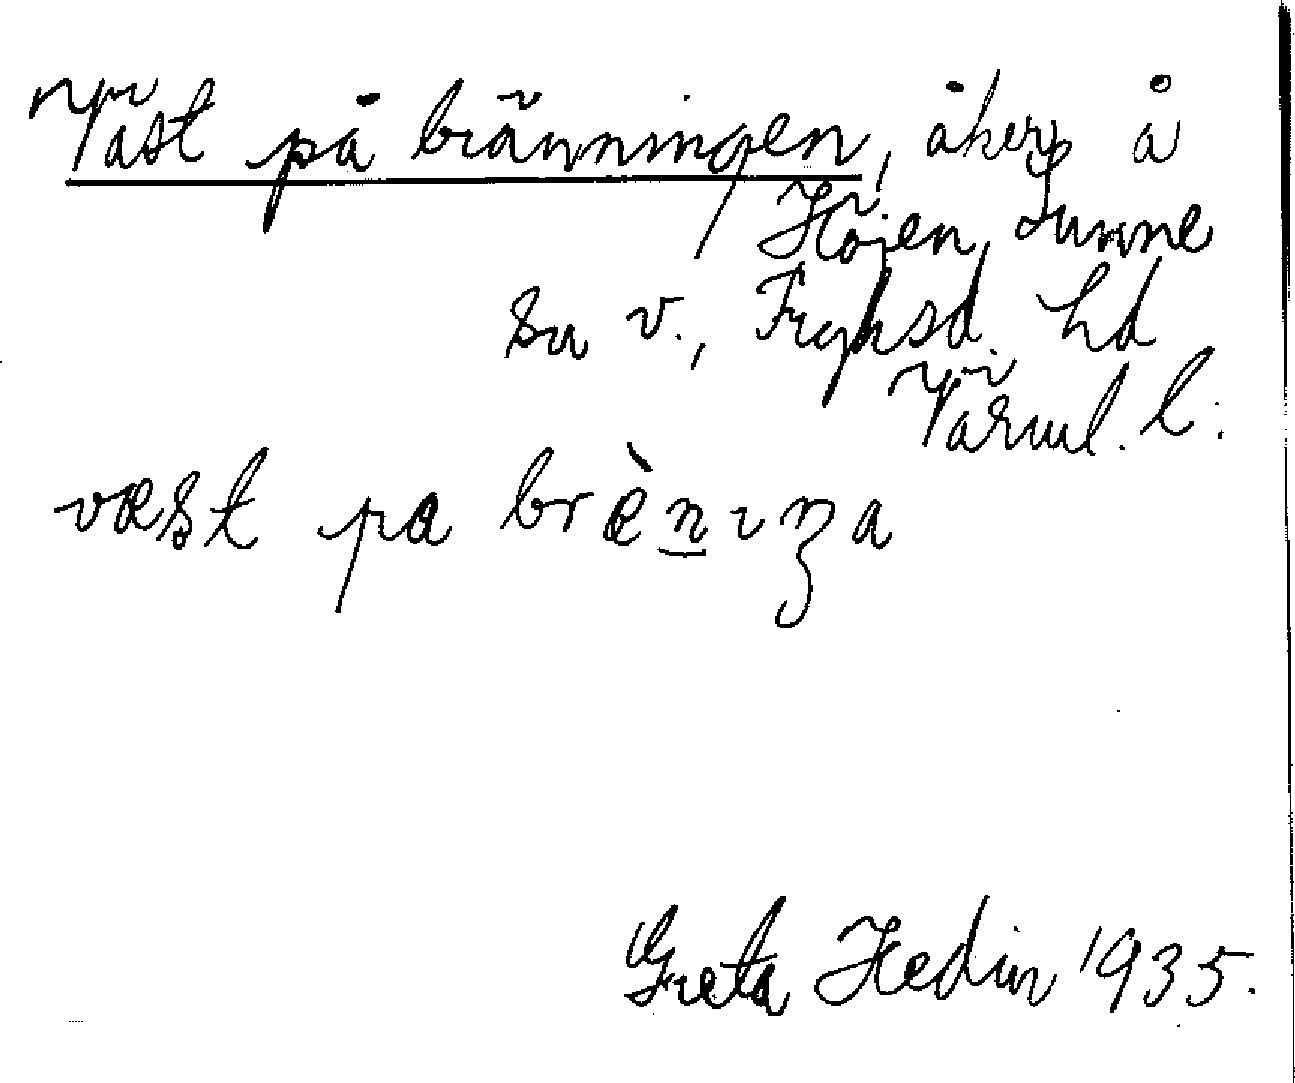 Väst på bränningen, åker, å
Höjen, Sunne
sn v., Fryksd. hd
Värml. l.
væst pa brènıŋa
Greta Hedin 1935.